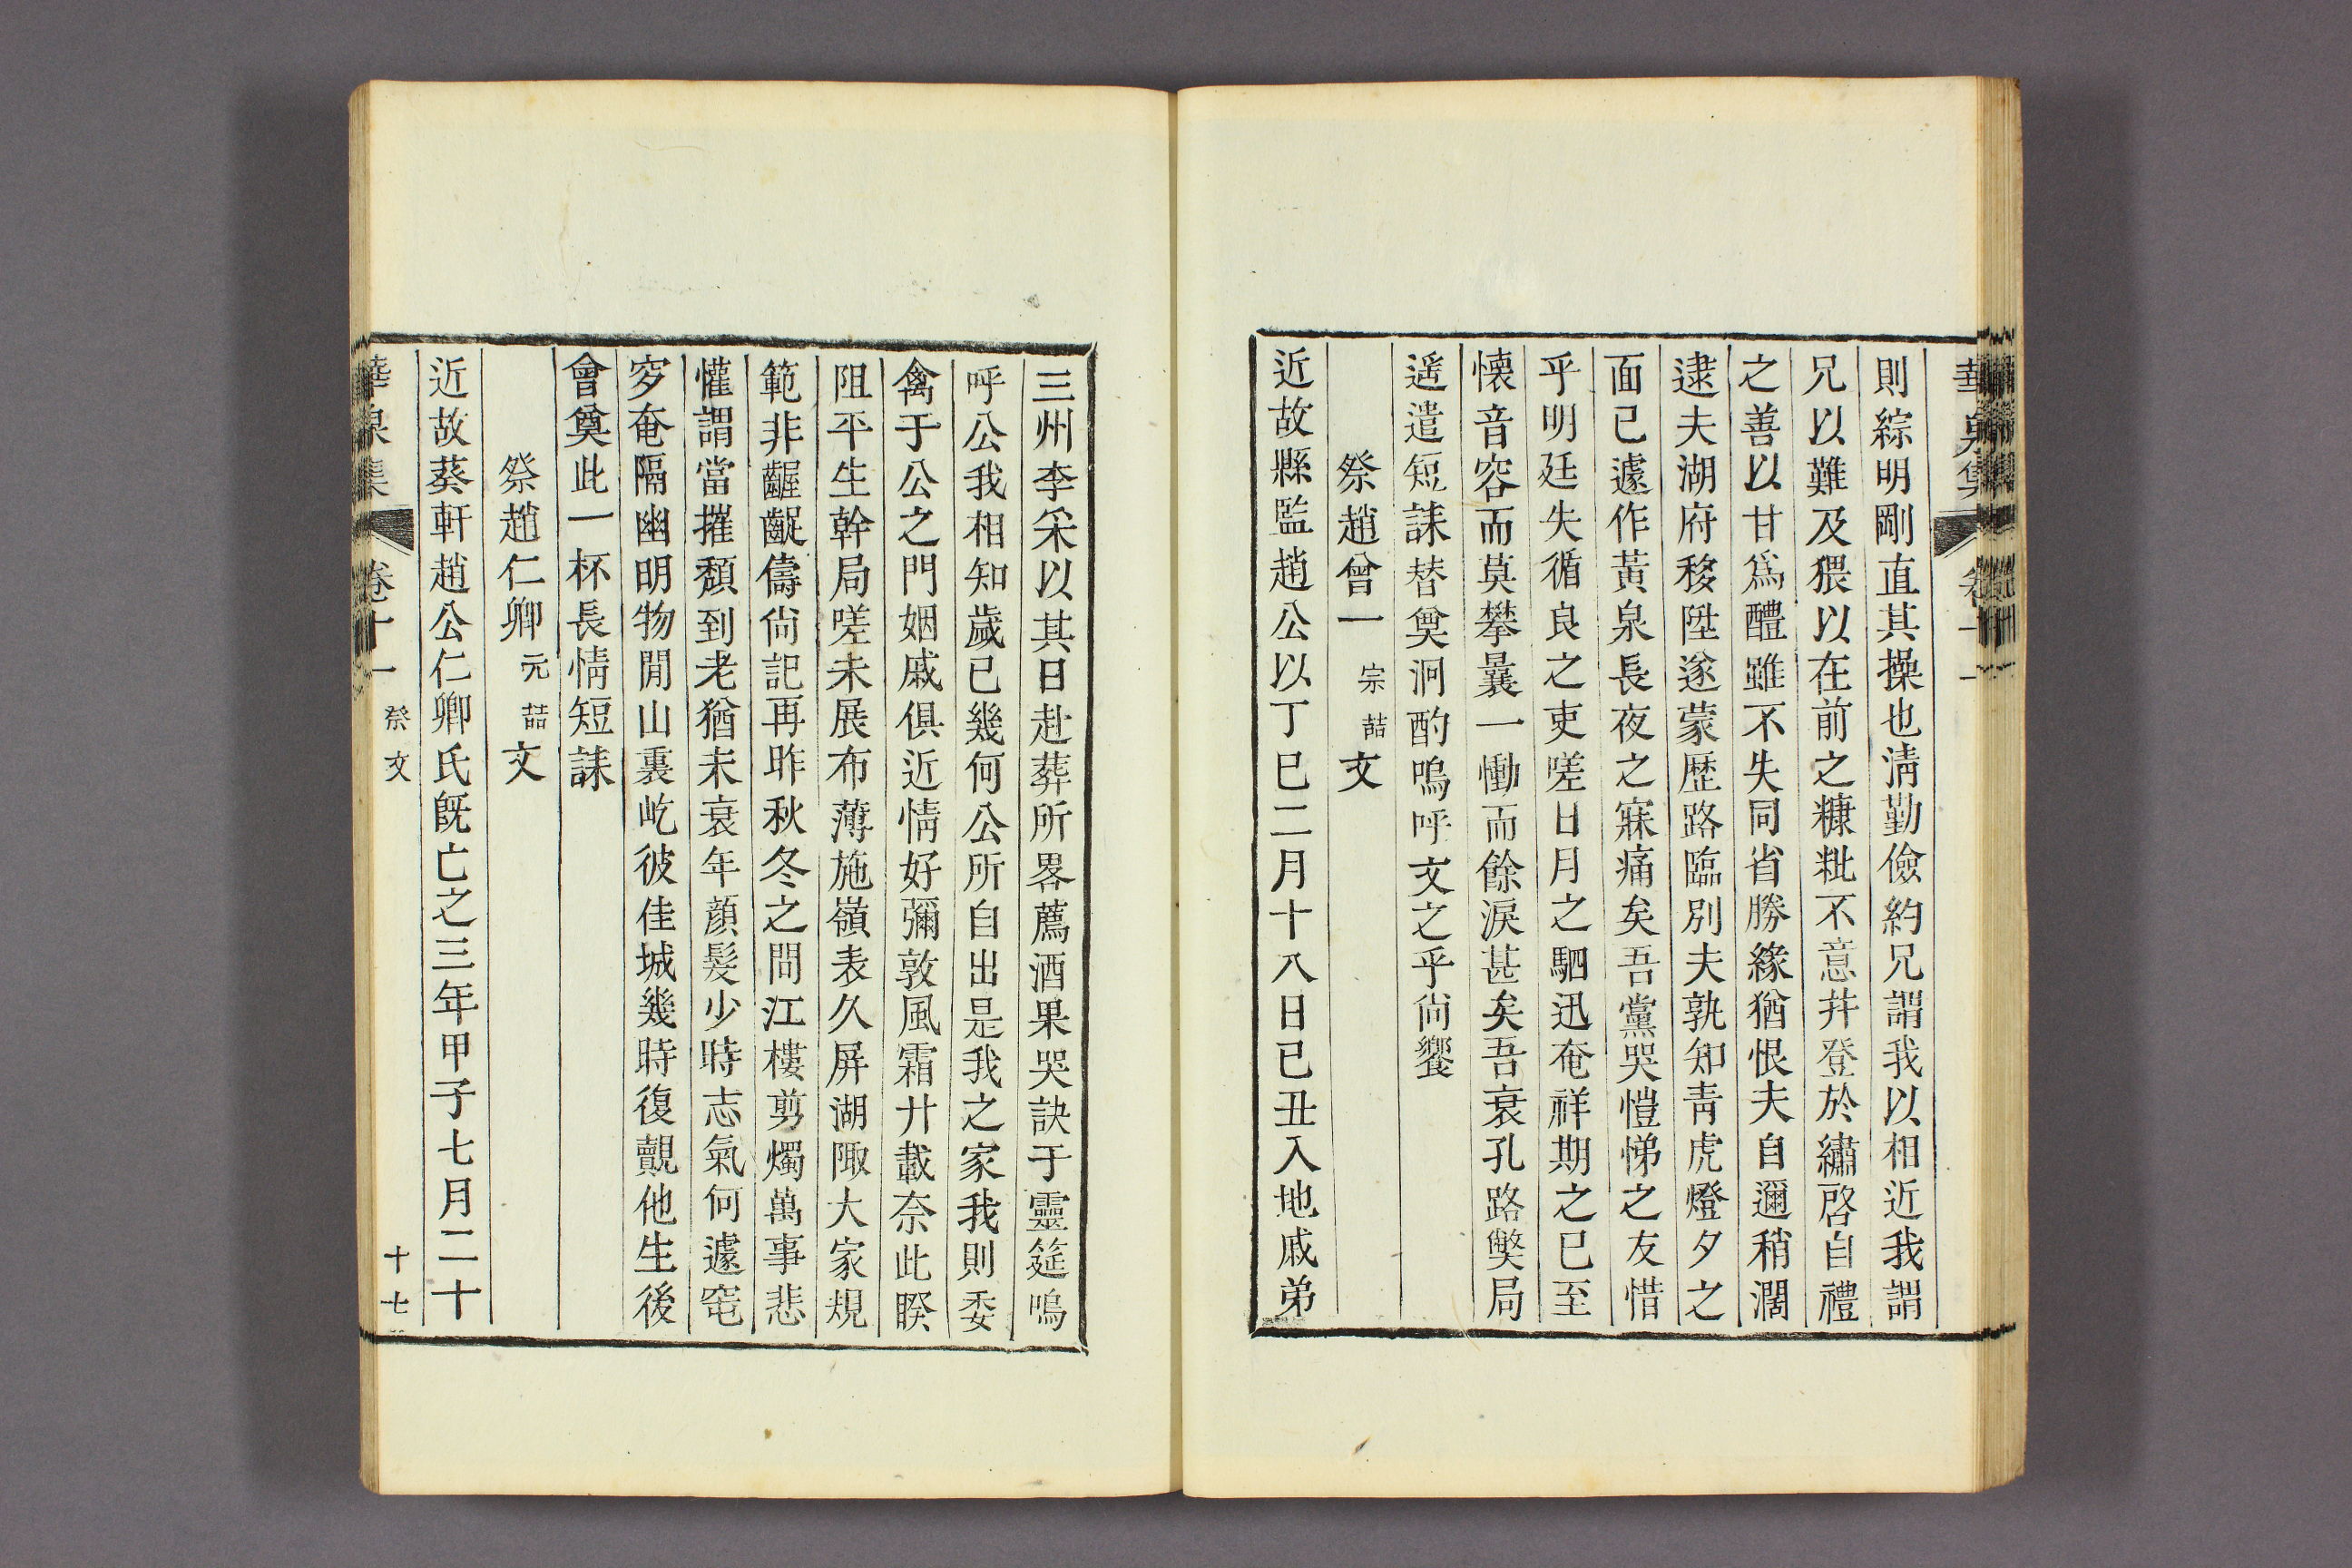 則綜明剛直其操也淸勤儉約兄謂我以相近我謂
兄以難及猥以在前之糠粃不意幷登於繡啓自禮
之善以甘爲醴雖不失同省勝緣猶恨夫自邇稍濶
逮夫湖府移陞遂蒙歷路臨別夫孰知靑虎燈夕之
面已遽作黃泉長夜之寐痛矣吾黨哭愷悌之友惜
乎明廷失循良之吏嗟日月之駟迅奄祥期之已至
懐音容而莫攀曩一慟而餘淚甚矣吾衰孔路獘局
遥遣短誄替奠泂酌嗚呼文之乎尙饗
祭趙曾一宗喆文
近故縣監趙公以丁巳二月十八日己丑入地戚弟
三州李采以其日赴葬所畧薦酒果哭訣于靈筵嗚
呼公我相知歲已幾何公所自出是我之家我則委
禽于公之門姻戚俱近情好彌敦風霜廿載奈此睽
阻平生幹局嗟未展布薄施嶺表久屏湖陬大家規
範非齷齪儔尙記再昨秋冬之間江樓剪燭萬事悲
懽謂當摧頹到老猶未衰年顔髮少時志氣何遽窀
穸奄隔幽明物閒山裏屹彼佳城幾時復覿他生後
會奠此一杯長情短誄
祭趙仁卿元喆文
近故葵軒趙公仁卿氏旣亡之三年甲子七月二十
華泉集 卷十一 祭文 十七